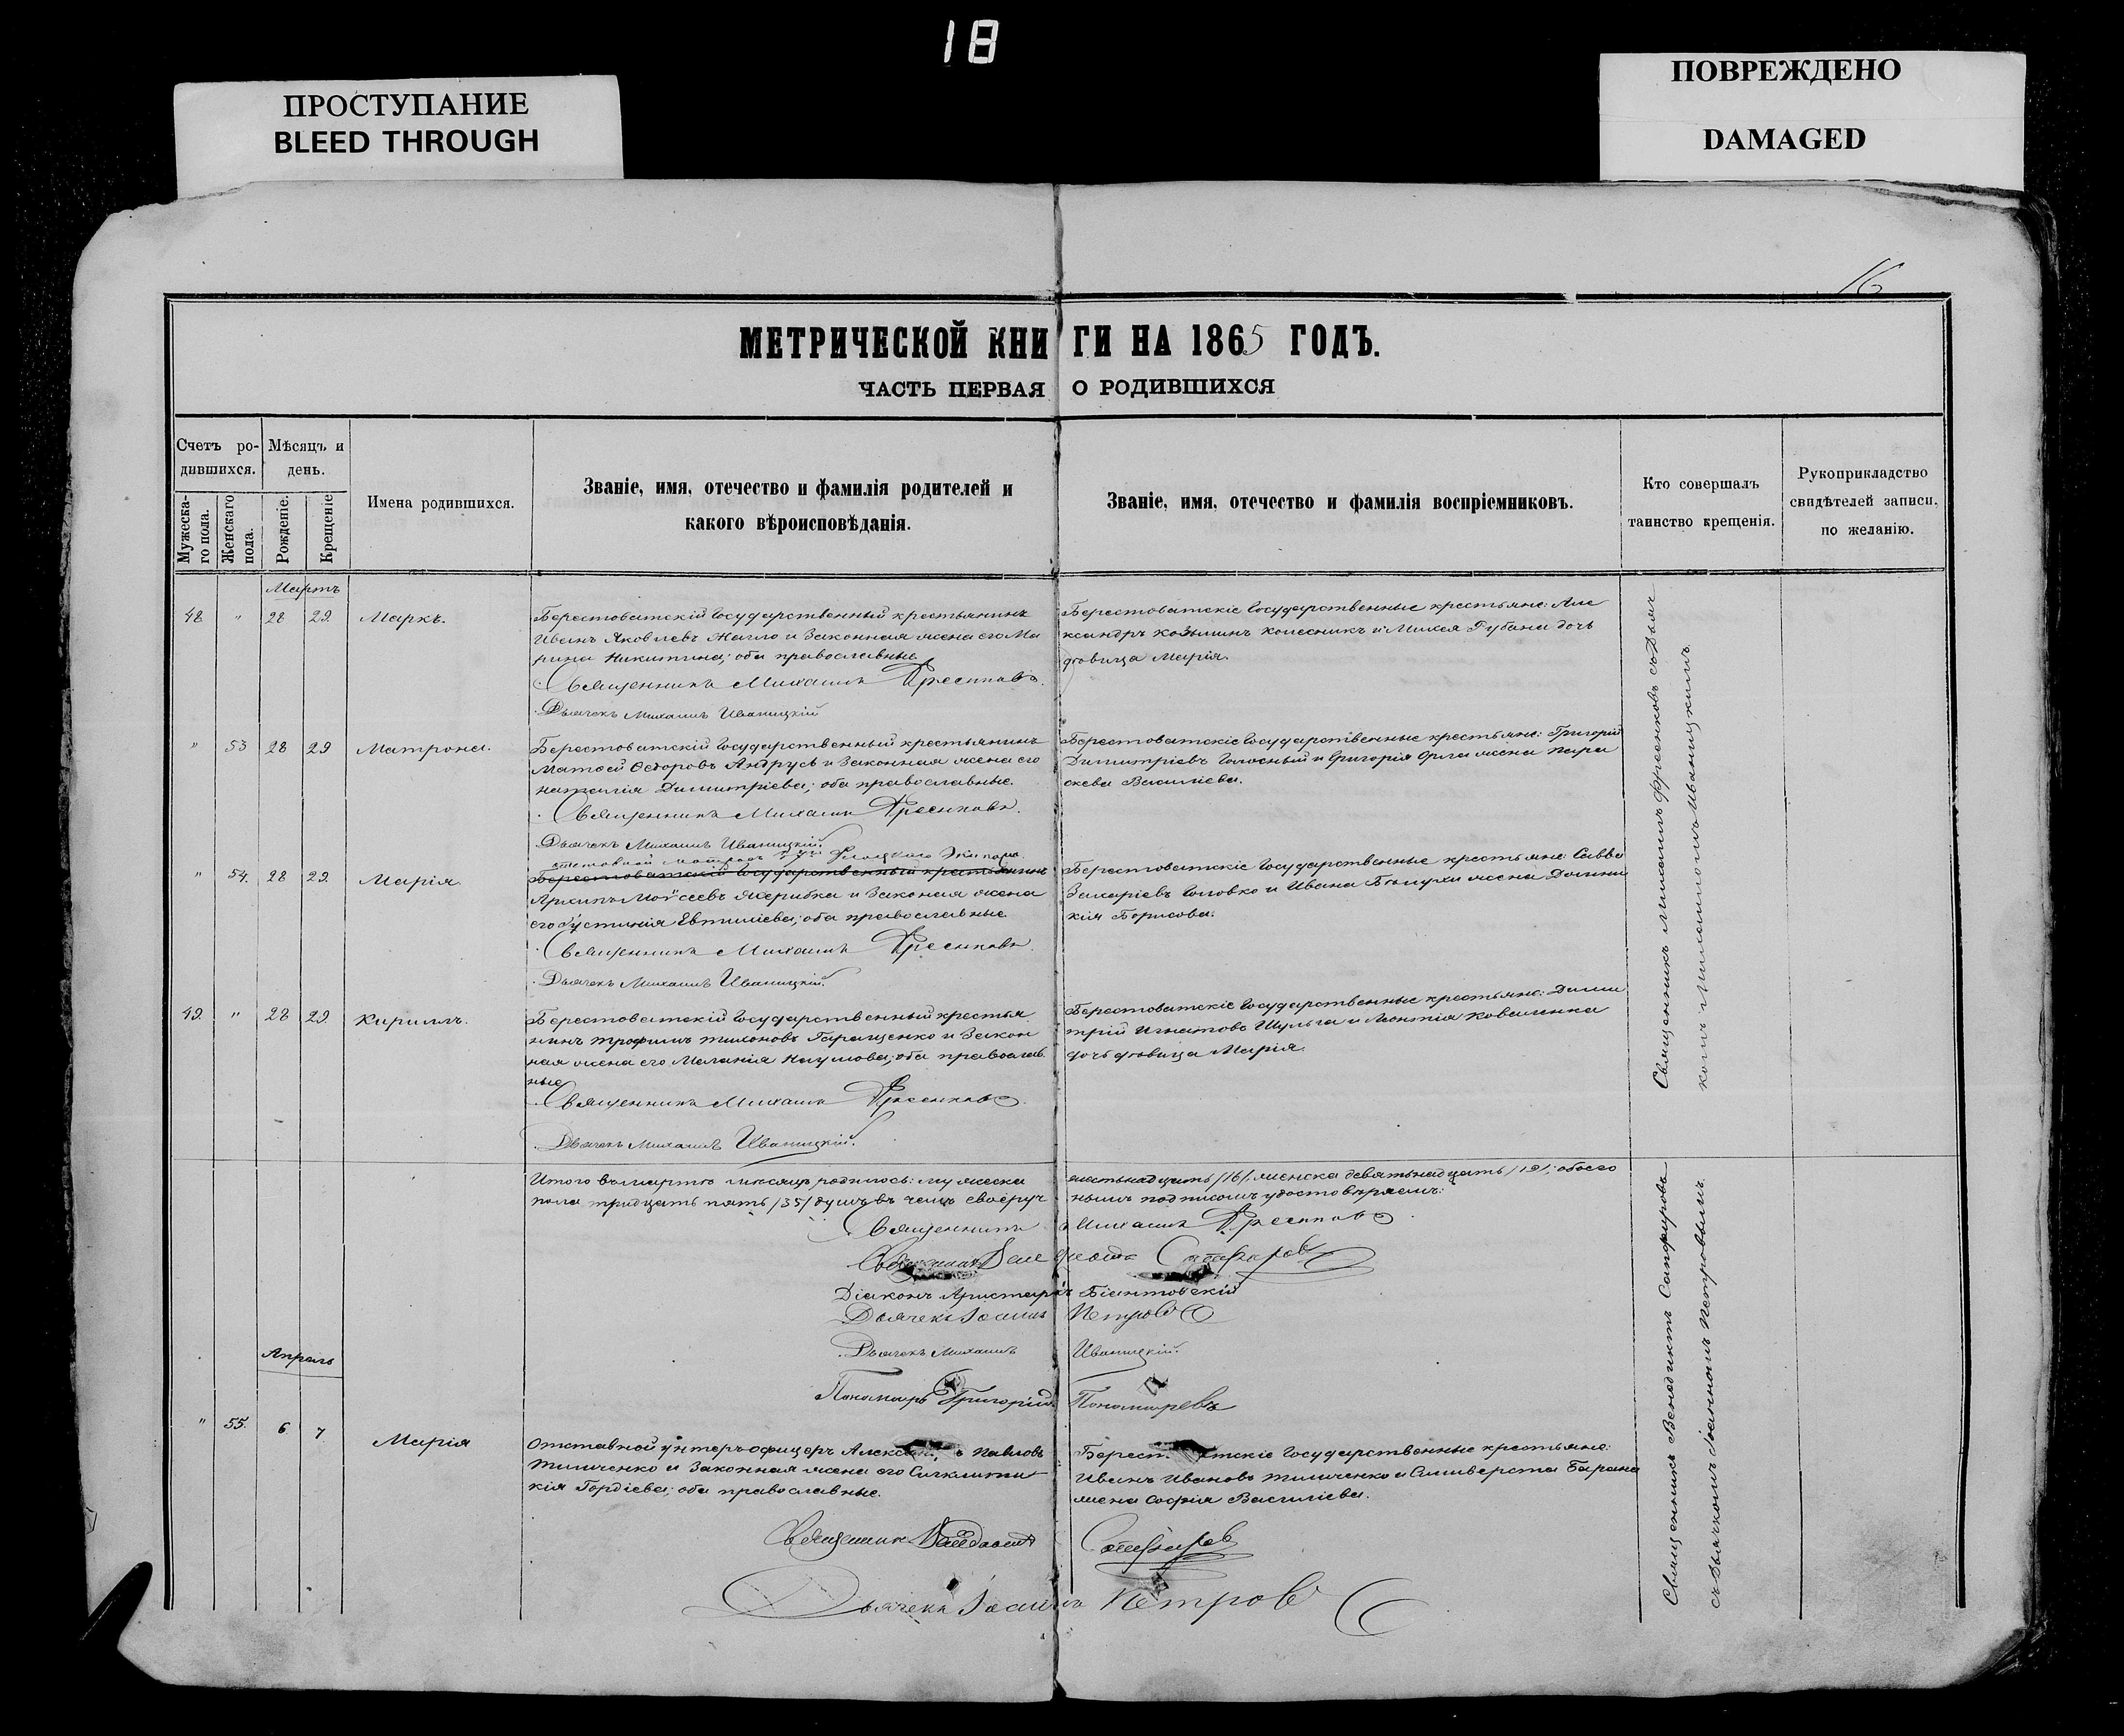 18
ПРОСТУПАНИЕ
BLEED THROUGH
ПОВРЕЖДЕНО
DAMAGED
16
МЕТРИЧЕСКОЙ КНИГИ НА 1865 ГОДЪ.
ЧАСТЬ ПЕРВАЯ О РОДИВШИХСЯ
Счетъ ро-
дившихся.
Мужеска-
го пола.
Женскаго
пола.
Мѣсяцъ и
день.
Рожденіе.
Крещеніе
Имена родившихся.
Званіе, имя, отечество и фамилія родителей и
какого вѣроисповѣданія.
Званіе, имя, отечество и фамилія воспріемниковъ.
Кто совершалъ
таинство крещенія.
Рукоприкладство
свидѣтелей записи,
по желанію.
Мартъ
48 " 28 29. Маркъ.
Берестоватскій Государственный крестьянинъ
Иванъ Яковлевъ Жагло и Законная жена его Ма
рина Никитина; оба православные
Священникъ Михаилъ Фесенковъ.
Дьячекъ Михаилъ Иваницкій
Берестоватскіе Государственные крестьяне: Але
ксандръ Козьминъ Колесникъ и Михея Губана дочь
дѣвица Марія.
" 53 28 29 Матрона.
Берестоватскій Государственный крестьянинъ
Матѳей Ѳедоровъ Андрусь и Законная жена его
Наталія Димитріева; оба православные.
Священникъ Михаилъ Фесенковъ.
Дьячекъ Михаилъ Иваницкій.
Берестоватскіе Государственные крестьяне: Григорій
Димитріевъ Голосный и Григорія Орла жена Пара
скева Василіева.
" 54. 28 29. Марія.
Флотскаго Экипажа
Берестоватскій Государственный крестьянинъ
Архипъ Моѵсеевъ Жерибка и Законая жена
его Устинія Евтихіева; оба православные.
Священникъ Михаилъ Фесенковъ.
Дьячекъ Михаилъ Иваницкій.
Берестоватскіе Государственные крестьяне: Савва
Захаріевъ Головко и Ивана Бѣлухи жена Домни
кія Борисова.
49. " 28 29. Кириллъ.
Берестоватскій Государственный крестья
нинъ Трофимъ Тихоновъ Геращенко и Закон
ная жена его Меланія Наумова; оба православ
ные
Священникъ Михаилъ Фесенковъ
Дьячекъ Михаилъ Иваницкій.
Берестоватскіе Государственные крестьяне: Дими
трій Игнатовъ Шульга и Леонтія Коваленка
дочь дѣвица Марія.
Священникъ Михаилъ Фесенковъ съ Дьяч
комъ Михаиломъ Иваницкимъ.
Итого въ мартѣ мѣсяцѣ родилось: мужеска шестьнадцать /16/, женска девятьнадцать /19/; обоего
пола тридцать пять /35/ душъ въ чемъ своеруч нымъ подписомъ удостовѣряемъ:
Священникъ Михаилъ Фесенковъ
Священникъ Венедиктъ Сапфировъ
Діаконъ Аристархъ
Дьячекъ Іоаннъ Петровъ
Дьячекъ Михаилъ Иваницкій.
Пономарь Григорій Пономаревъ
Апрель
" 55. 6 7 Марія
Отставной унтеръ-офицеръ Павловъ
Тимченко и Законная жена его Синклити
кія Гордіева; оба православные.
Государственные крестьяне:
Иванъ Ивановъ Тимченко и Силиверста Барана
жена Софія Василіева.
Священникъ Венедиктъ Сапфировъ
Дьячекъ Іоаннъ Петровъ
Священникъ Венедиктъ Сапфировъ
съ дьячкомъ Іоанномъ Петровымъ.